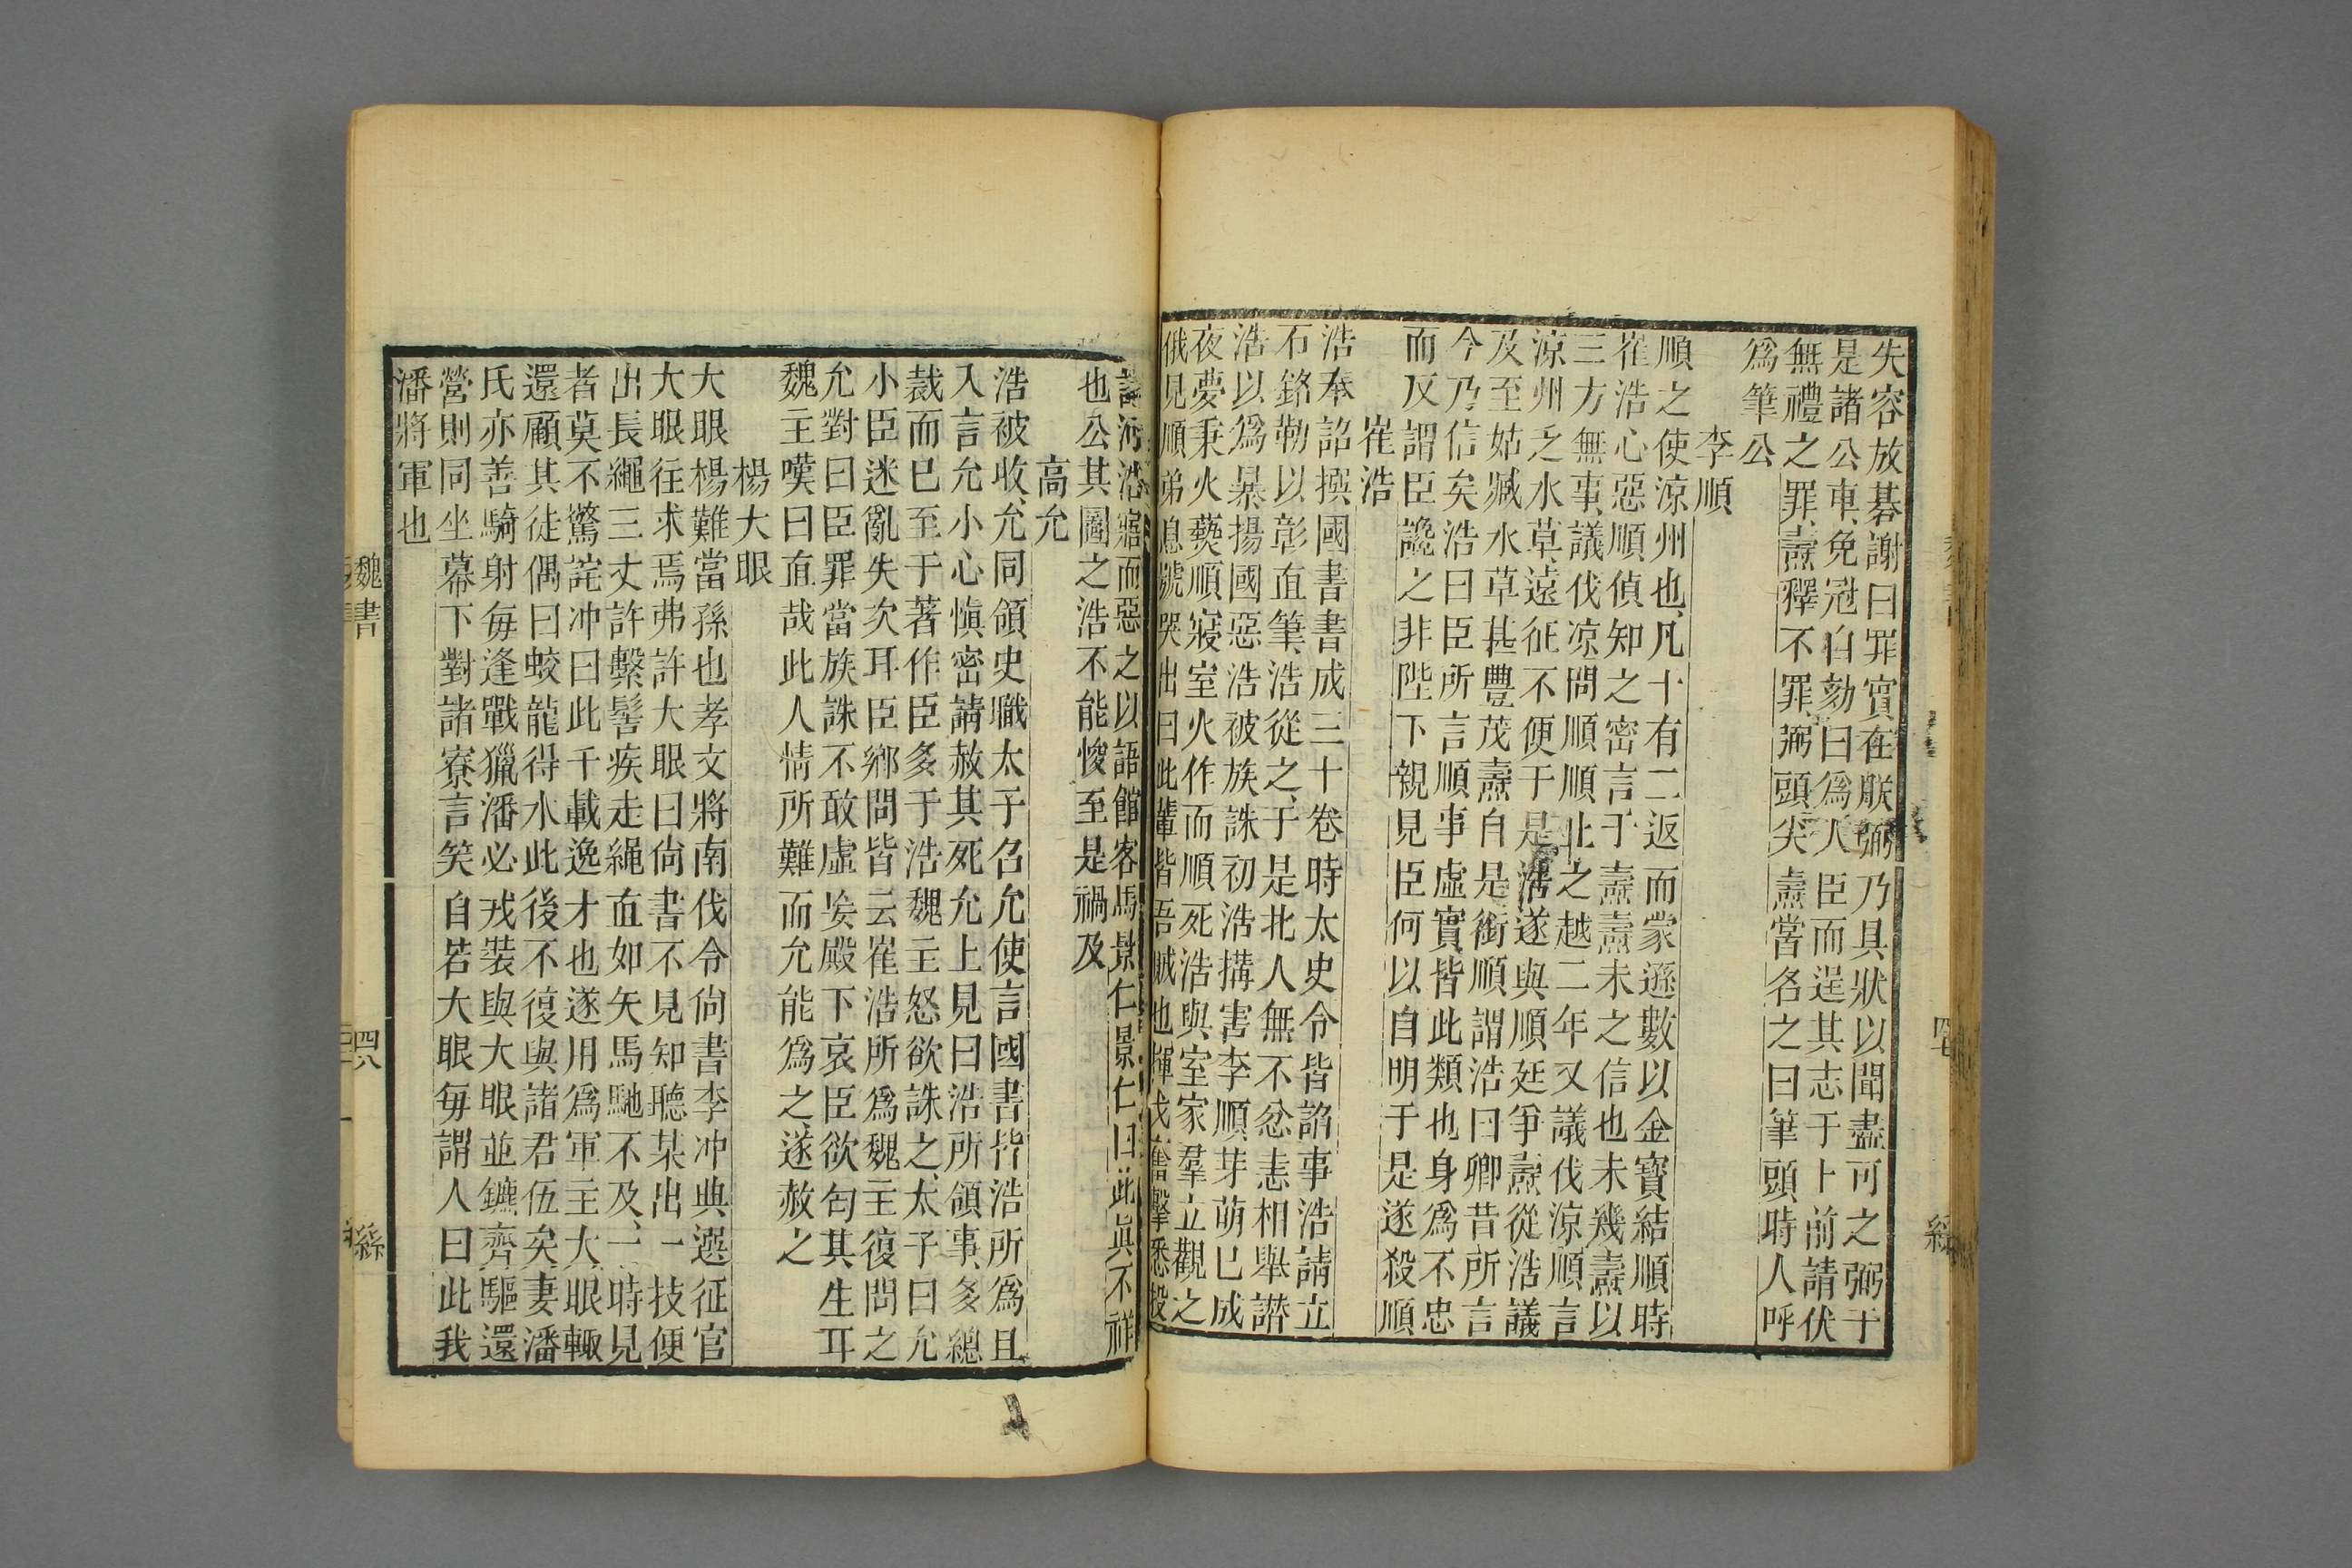 失容放棊謝曰罪實在朕弼乃具狀以聞盡可之弼于
是諸公車免冠自劾曰爲人臣而逞其志于上前請伏
無禮之罪燾釋不罪弼頭尖燾嘗名之曰筆頭時人呼
爲筆公
李順
順之使涼州也凡十有二返而蒙遜數以金寶結順時
崔浩心惡順偵知之密言于燾燾未之信也未幾燾以
三方無事議伐凉問順順止之越二年又議伐涼順言
涼州乏水草遠征不便于是浩遂與順廷爭燾從浩議
及至姑臧水草甚豐茂燾自是銜順謂浩曰卿昔所言
今乃信矣浩曰臣所言順事虛實皆此類也身爲不忠
而反謂臣讒之非陛下親見臣何以自明于是遂殺順
崔浩
浩奉詔撰國書書成三十卷時太史令皆諂事浩請立
石銘勒以彰直筆浩從之于是北人無不忿恚相與譖
浩以爲暴揚國惡浩被族誅初浩搆害李順芽萌已成
夜夢秉火爇順寢室火作而順死浩與室家羣立觀之
俄見順弟息號哭出曰此輩皆吾賊也揮戈奮擊悉投
諸河浩寤而惡之以語館客馬景仁景仁曰此眞不祥
也公其圖之浩不能悛至是禍及
高允
浩被收允同領史職太子召允使言國書皆浩所爲且
入言允小心愼密請赦其死允上見曰浩所領事多總
裁而已至于著作臣多于浩魏主怒欲誅之太子曰允
小臣迷亂失次耳臣鄉問皆云崔浩所爲魏主復問之
允對曰臣罪當族誅不敢虛妄殿下哀臣欲匄其生耳
魏主嘆曰直哉此人情所難而允能爲之遂赦之
楊大眼
大眼楊難當孫也孝文將南伐令尙書李冲典選征官
大眼往求焉弗許大眼曰尙書不見知聽某出一技便
出長繩三丈許繫髻疾走繩直如矢馬馳不及一時見
者莫不驚詫冲曰此千載逸才也遂用爲軍主大眼輙
還顧其徒偶曰蛟龍得水此後不復與諸君伍矣妻潘
氏亦善騎射每逢戰獵潘必戎裝與大眼並鑣齊驅還
營則同坐幕下對諸寮言笑自若大眼每謂人曰此我
潘將軍也
魏書
四八